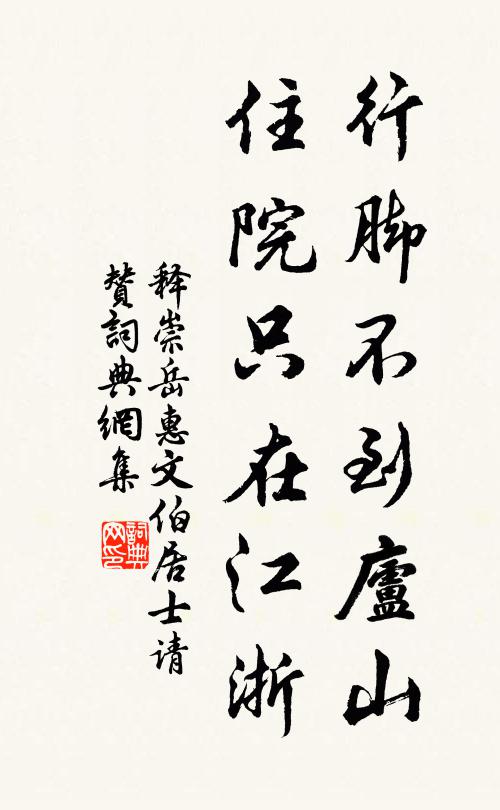 行脚不到廬山
住院只在江浙
释崇岳惠文伯居士请
赞詞典網集
詞典
网印